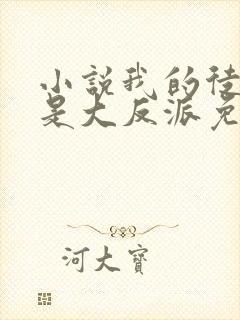 小說我的徒
是大反派免
河大寶